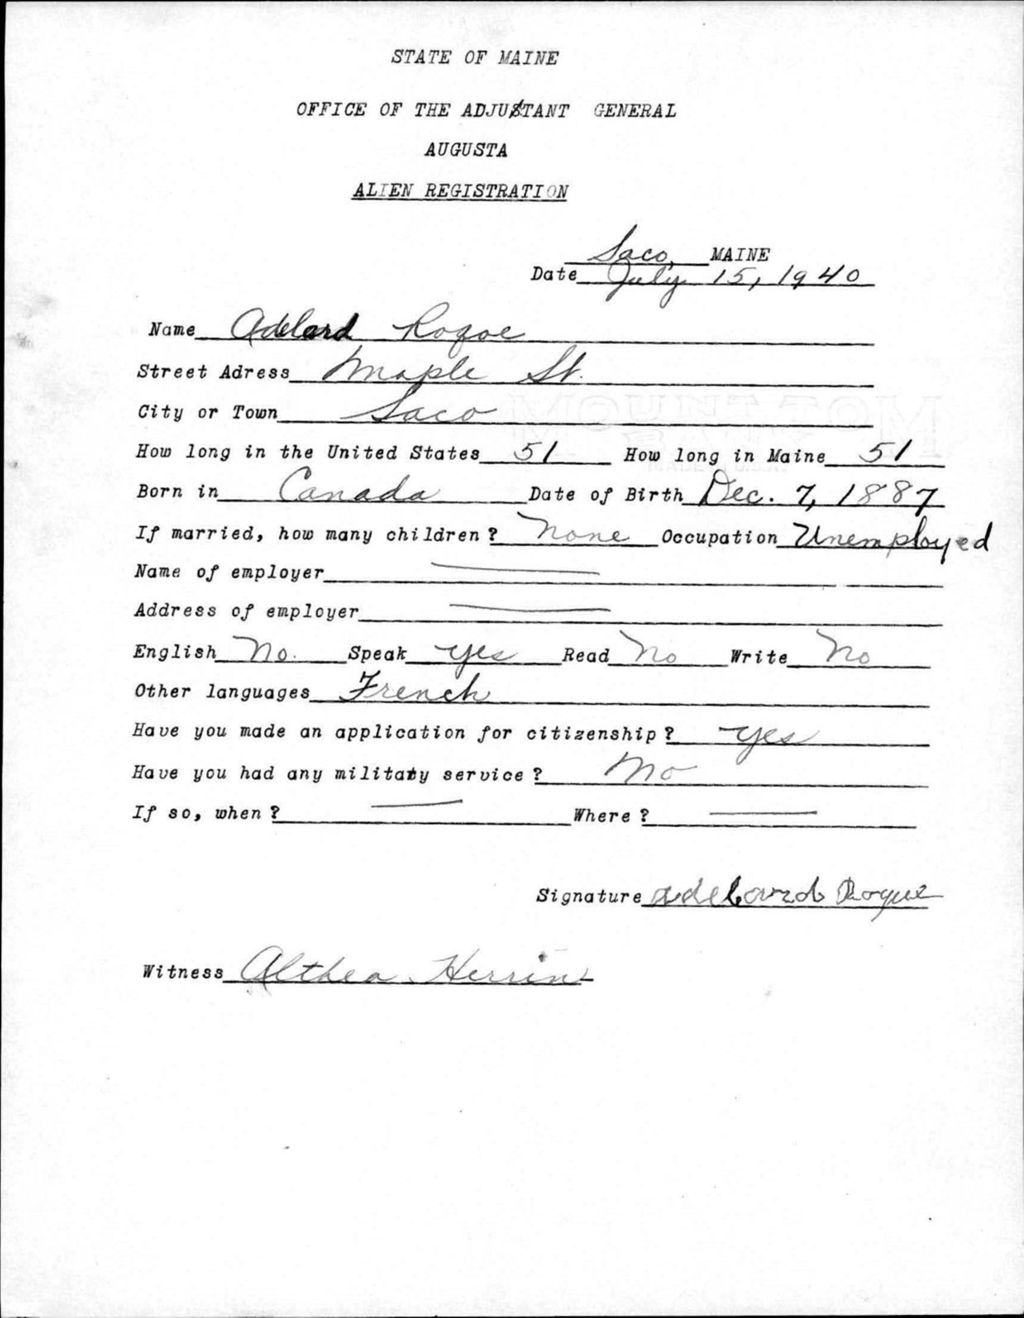 STATE OF MAINE
OFFICE OF THE ADJUSTANT GENERAL
AUGUSTA
ALIEN REGISTRATION
Saco, MAINE
Date July 15, 1940
Name Adelard Rogoe
Street Adress Maple St.
City or Town Saco
How long in the United States 51 How long in Maine 51
Born in Canada Date of Birth Dec. 7, 1887
If married, how many children? None Occupation Unemployed
Name of employer
Address of employer
English No. Speak yes Read No Write No
Other languages French
Have you made an application for citizenship? yes
Have you had any military service? No
If so, when? Where?
Signature adelard Rogue
Witness Althea Herrin
MOUNT TOM